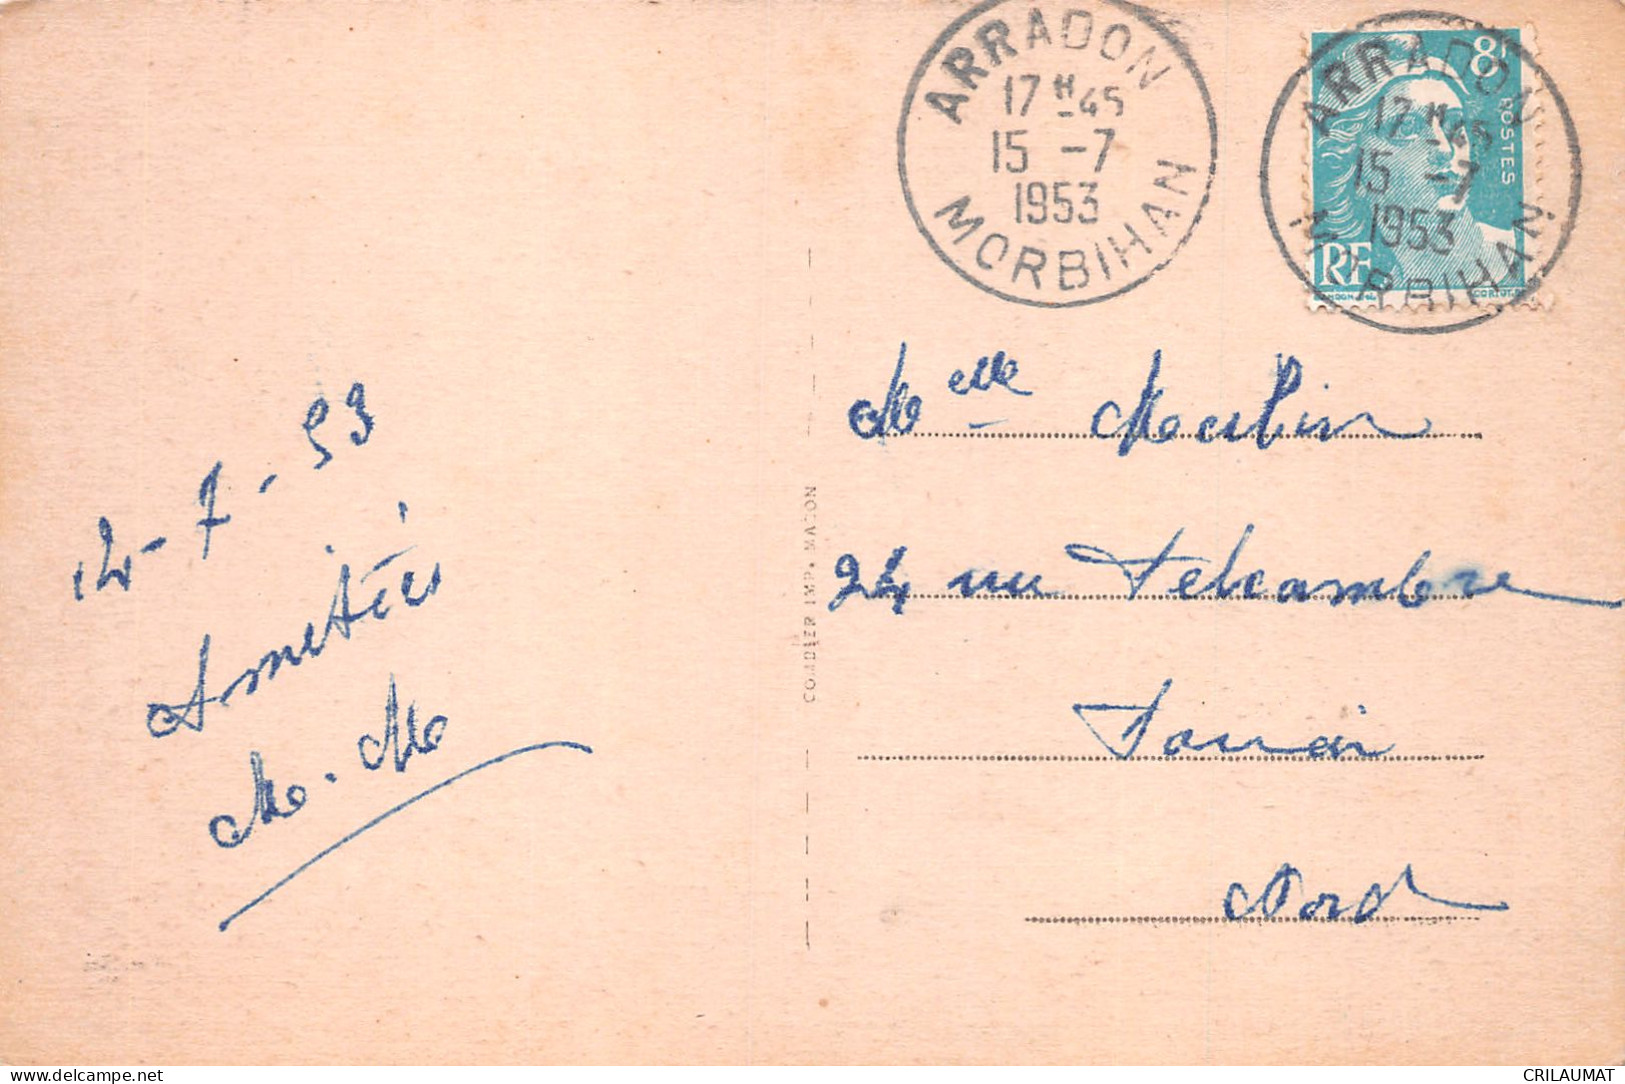 ARRADON
17 H 45
15 -7
1953
MORBIHAN
8F
POSTES
RF
ARRADON
17 H 45
15 -7
1953
MORBIHAN
Melle Moulin
24 rue Delcambre
Douai
Nord
12-7-53
Amitiés
M. M
COMBIER IMP. MACON
CRILAUMAT